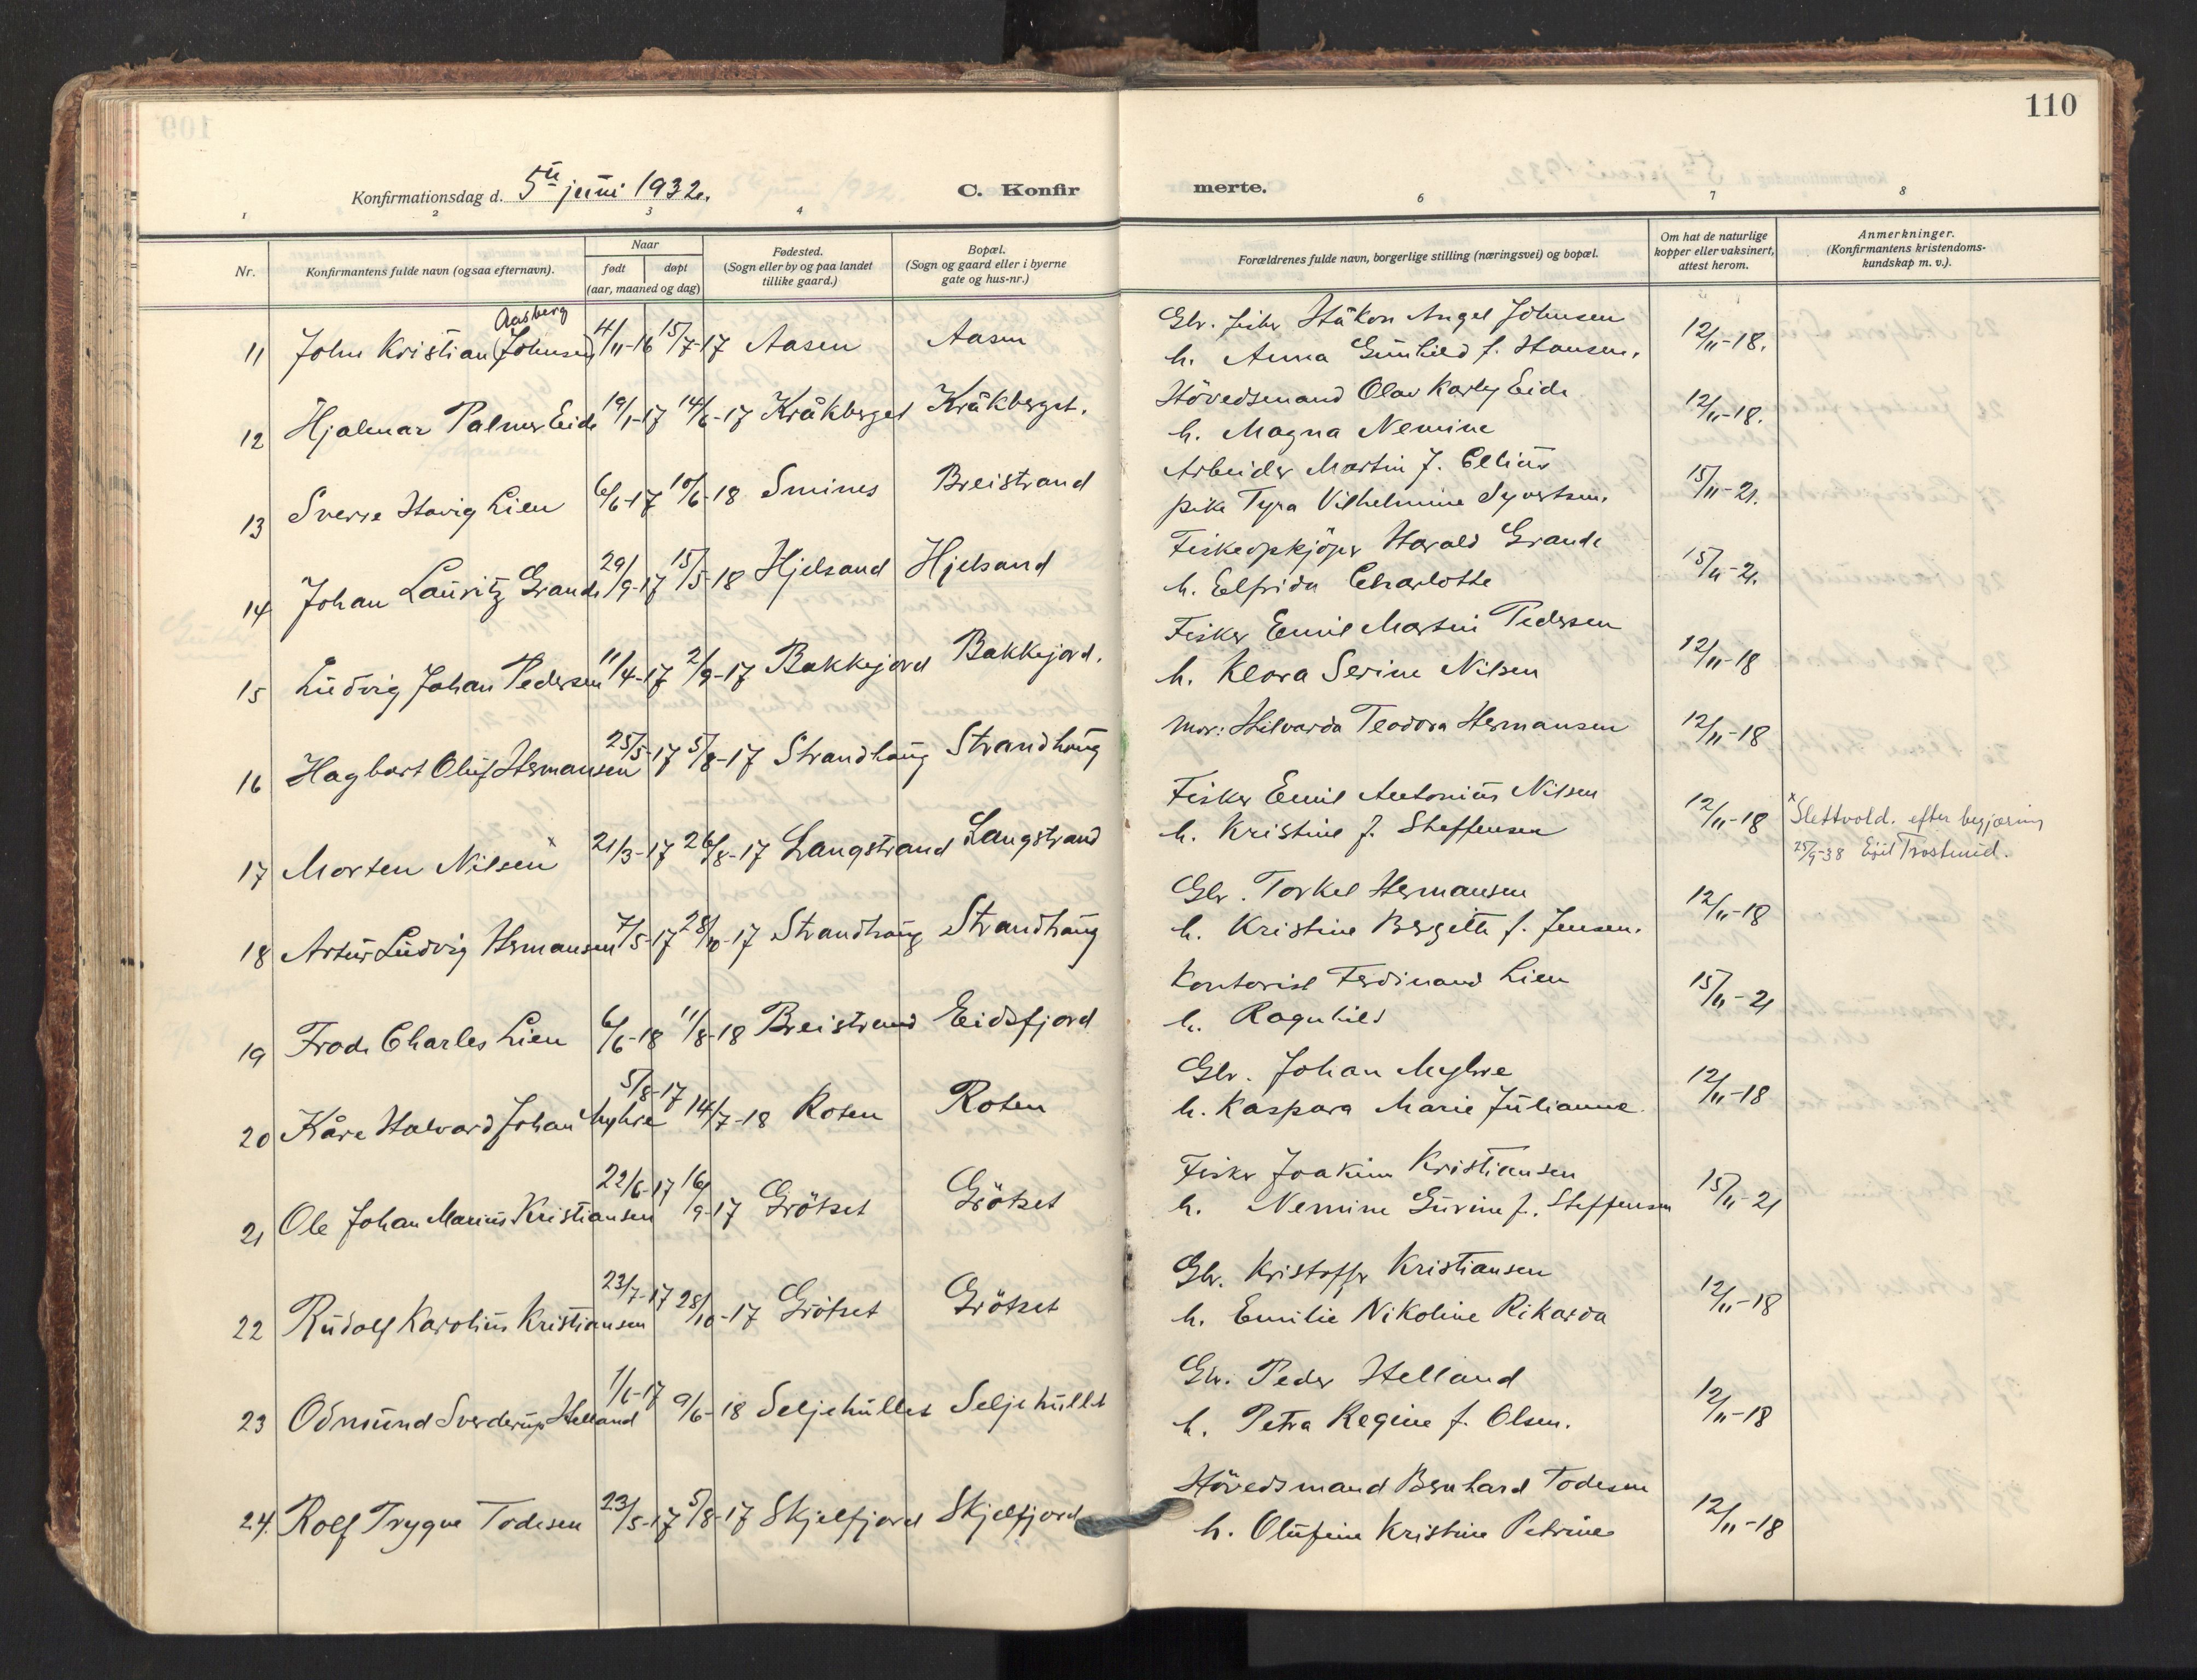 110
Konfirmationsdag d. 5te juni 1932.
C. Konfir
merte.
1 2 3 4 6 7 8
Nr.
Konfirmantens fulde navn (ogsaa efternavn).
Naar
født døpt
(aar, maaned og dag)
Fødested.
(Sogn eller by og paa landet
tillike gaard.)
Bopæl.
(Sogn og gaard eller i byerne
gate og hus-nr.)
Forældrenes fulde navn, borgerlige stilling (næringsvei) og bopæl.
Om hat de naturlige
kopper eller vaksinert,
attest herom.
Anmerkninger.
(Konfirmantens kristendoms-
kundskap m. v.).
Aasberg
11 John Kristian (Johnsen) 4/11-16 15/7-17 Aasen Aasen
Gbr. fisker Håkon Angel Johnsen
h. Anna Gunhild f. Hansen.
12/11-18.
12 Hjalmar Palmer Eide 19/1-17 14/6-17 Kråkberget Kråkberget.
Hövedsmand Olav Karly Eide
h. Magna Nemine
12/11-18.
13 Sverre Havig Lien 6/6-17 10/6-18 Smines Breistrand
Arbeider Martin J. Ellius
pike Tyra Vilhelmine Syvertsen.
15/11-21.
14 Johan Lauritz Grande 29/9-17 15/5-18 Hjelsand Hjelsand
Fiskeopkjöper Harald Grande
h. Elfrida Charlotte
15/11-21.
15 Ludvig Johan Pedersen 11/4-17 2/9-17 Bakkejord Bakkejord.
Fisker Emil Martin Pedersen
h. Klara Serine Nilsen
12/11-18
16 Hagbart Oluf Hermansen 25/5-17 5/8-17 Strandhaug Strandhaug
Mor: Hilvarda Teodora Hermansen
12/11-18
17 Morten Nilsen x 21/3-17 26/8-17 Langstrand Langstrand
Fisker Emil Antonius Nilsen
h. Kristine f. Steffensen
12/11-18
x Slettvold. efter begjæring
25/9-38 Egil Trostmid.
18 Artur Ludvig Hermansen 7/5-17 28/10-17 Strandhaug Strandhaug
Gbr. Torkel Hermansen
h. Kristine Bergitte f. Jensen.
12/11-18
19 Frode Charles Lien 6/6-18 11/8-18 Breistrand Eidsfjord
Kontorist Ferdinand Lien
h. Ragnhild
15/11-21
20 Kåre Halvard Johan Myhre 5/8-17 14/7-18 Roten Roten
Gbr. Johan Myhre
h. Kaspara Marie Julianne
12/11-18
21 Ole Johan Marius Kristiansen 22/6-17 16/9-17 Grötset Grötset
Fisker Joakim Kristiansen
h. Nemine Gurine f. Steffensen
15/11-21
22 Rudolf Karolius Kristiansen 23/7-17 28/10-17 Grötset Grötset
Gbr. Kristoffer Kristiansen
h. Emilie Nikoline Rikarda
12/11-18
23 Odmund Sverdrup Helland 1/6-17 9/6-18 Seljehullet Seljehullet
Gbr. Peder Helland
h. Petra Regine f. Olsen.
12/11-18
24. Rolf Trygve Todesen 23/5-17 5/8-17 Skjelfjord Skjelfjord
Hövedsmand Bernhard Todesen
h. Olufine Kristine Petrine
12/11-18